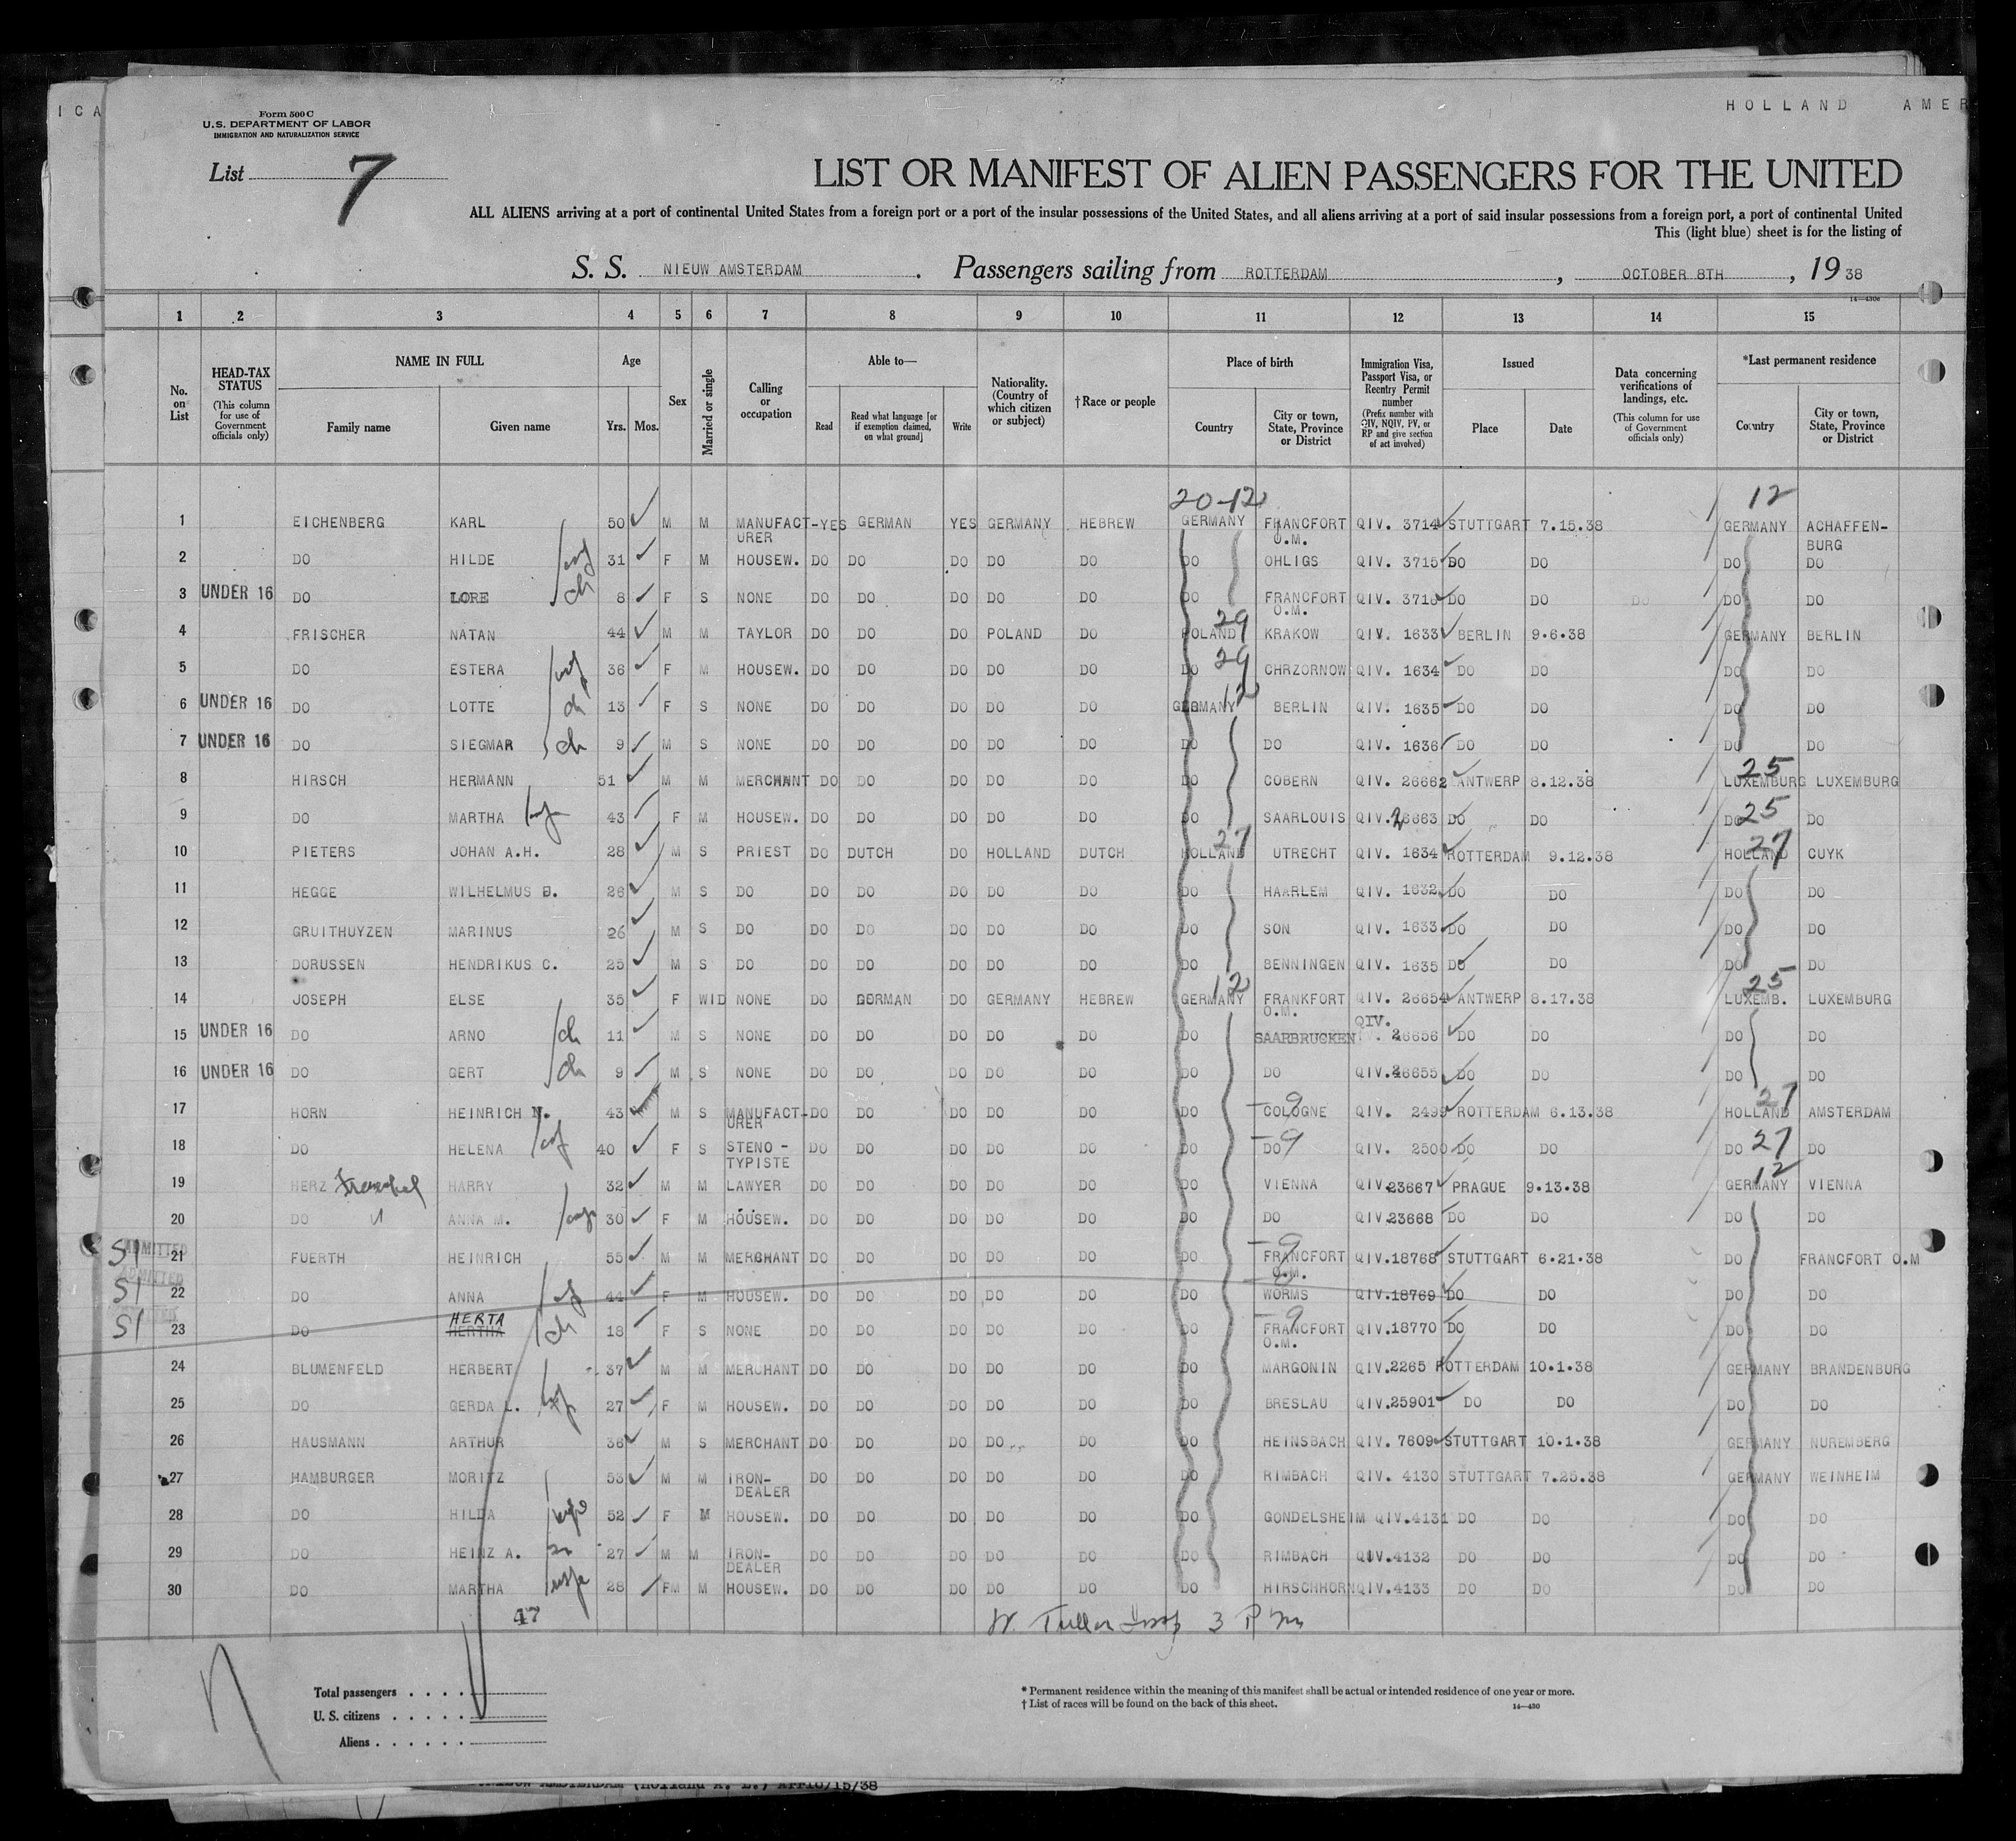 I C A
HOLLAND AMER
Form 500 C
U.S. DEPARTMENT OF LABOR
IMMIGRATION AND NATURALIZATION SERVICE
List 7
LIST OR MANIFEST OF ALIEN PASSENGERS FOR THE UNITED
ALL ALIENS arriving at a port of continental United States from a foreign port or a port of the insular possessions of the United States, and all aliens arriving at a port of said insular possessions from a foreign port, a port of continental United
This (light blue) sheet is for the listing of
S. S. NIEUW AMSTERDAM . Passengers sailing from ROTTERDAM , OCTOBER 8TH , 19 38
1 2 3 4 5 6 7 8 9 10 11 12 13 14 15
No. on List
HEAD-TAX STATUS
(This column for use of Government officials only)
NAME IN FULL
Family name Given name
Age
Yrs. Mos.
Sex
Married or single
Calling or occupation
Able to—
Read
Read what language [or if exemption claimed, on what ground]
Write
Nationality. (Country of which citizen or subject)
†Race or people
Place of birth
Country
City or town, State, Province or District
Immigration Visa, Passport Visa, or Reentry Permit number
(Prefix number with QIV, NQIV, PV, or RP and give section of act involved)
Issued
Place Date
Data concerning verifications of landings, etc.
(This column for use of Government officials only)
*Last permanent residence
Country
City or town, State, Province or District
20-12 12
1 EICHENBERG KARL 50 M M MANUFACTURER YES GERMAN YES GERMANY HEBREW GERMANY FRANCFORT O.M. QIV. 3714 STUTTGART 7.15.38 GERMANY ACHAFFENBURG
2 DO HILDE wf 31 F M HOUSEW. DO DO DO DO DO DO OHLIGS QIV. 3715 DO DO DO DO
3 UNDER 16 DO LORE ch 8 F S NONE DO DO DO DO DO DO FRANCFORT O.M. QIV. 3716 DO DO DO DO
4 FRISCHER NATAN 44 M M TAYLOR DO DO DO POLAND DO POLAND 29 KRAKOW QIV. 1633 BERLIN 9.6.38 GERMANY BERLIN
5 DO ESTERA wf 36 F M HOUSEW. DO DO DO DO DO DO 29 CHRZORNOW QIV. 1634 DO DO DO DO
6 UNDER 16 DO LOTTE ch 13 F S NONE DO DO DO DO DO GERMANY 12 BERLIN QIV. 1635 DO DO DO DO
7 UNDER 16 DO SIEGMAR ch 9 M S NONE DO DO DO DO DO DO DO QIV. 1636 DO DO DO DO
8 HIRSCH HERMANN 51 M M MERCHANT DO DO DO DO DO DO COBERN QIV. 26662 ANTWERP 8.12.38 LUXEMBURG 25 LUXEMBURG
9 DO MARTHA wf 43 F M HOUSEW. DO DO DO DO DO DO SAARLOUIS QIV. 26663 DO DO DO 25 DO
10 PIETERS JOHAN A.H. 28 M S PRIEST DO DUTCH DO HOLLAND DUTCH HOLLAND 27 UTRECHT QIV. 1634 ROTTERDAM 9.12.38 HOLLAND 27 CUYK
11 HEGGE WILHELMUS B. 26 M S DO DO DO DO DO DO DO HAARLEM QIV. 1632 DO DO DO DO
12 GRUITHUYZEN MARINUS 26 M S DO DO DO DO DO DO DO SON QIV. 1633 DO DO DO DO
13 DORUSSEN HENDRIKUS C. 25 M S DO DO DO DO DO DO DO BENNINGEN QIV. 1635 DO DO DO DO
14 JOSEPH ELSE 35 F WID NONE DO GERMAN DO GERMANY HEBREW GERMANY 12 FRANKFORT O.M. QIV. 26654 ANTWERP 8.17.38 LUXEMB. 25 LUXEMBURG
15 UNDER 16 DO ARNO ch 11 M S NONE DO DO DO DO DO DO SAARBRUCKEN QIV. 26656 DO DO DO DO
16 UNDER 16 DO GERT ch 9 M S NONE DO DO DO DO DO DO DO QIV. 26655 DO DO DO DO
17 HORN HEINRICH N. 43 M S MANUFACTURER DO DO DO DO DO DO COLOGNE 9 QIV. 2499 ROTTERDAM 6.13.38 HOLLAND 27 AMSTERDAM
18 DO HELENA wf 40 F S STENO-TYPISTE DO DO DO DO DO DO DO 9 QIV. 2500 DO DO DO 27 DO
19 HERZ HARRY 32 M M LAWYER DO DO DO DO DO DO VIENNA QIV.23667 PRAGUE 9.13.38 GERMANY 12 VIENNA
20 DO ANNA M. wf 30 F M HOUSEW. DO DO DO DO DO DO DO QIV.23668 DO DO DO DO
SI ADMITTED 21 FUERTH HEINRICH 55 M M MERCHANT DO DO DO DO DO DO FRANCFORT O.M. 9 QIV.18768 STUTTGART 6.21.38 DO FRANCFORT O.M
SI ADMITTED 22 DO ANNA wf 44 F M HOUSEW. DO DO DO DO DO DO WORMS QIV.18769 DO DO DO DO
SI 23 DO HERTA HERTHA ch 18 F S NONE DO DO DO DO DO DO FRANCFORT O.M. 9 QIV.18770 DO DO DO DO
24 BLUMENFELD HERBERT 37 M M MERCHANT DO DO DO DO DO DO MARGONIN QIV.2265 ROTTERDAM 10.1.38 GERMANY BRANDENBURG
25 DO GERDA L. wf 27 F M HOUSEW. DO DO DO DO DO DO BRESLAU QIV.25901 DO DO DO DO
26 HAUSMANN ARTHUR 36 M S MERCHANT DO DO DO DO DO DO HEINSBACH QIV. 7609 STUTTGART 10.1.38 GERMANY NUREMBERG
27 HAMBURGER MORITZ 53 M M IRON-DEALER DO DO DO DO DO DO RIMBACH QIV. 4130 STUTTGART 7.25.38 GERMANY WEINHEIM
28 DO HILDA wife 52 F M HOUSEW. DO DO DO DO DO DO GONDELSHEIM QIV.4131 DO DO DO DO
29 DO HEINZ A. 27 M M IRON-DEALER DO DO DO DO DO DO RIMBACH QIV.4132 DO DO DO DO
30 DO MARTHA wife 28 FM M HOUSEW. DO DO DO DO DO DO HIRSCHHORN QIV.4133 DO DO DO DO
47
3 P
Total passengers . . . .
U. S. citizens . . . . .
Aliens . . . . . .
* Permanent residence within the meaning of this manifest shall be actual or intended residence of one year or more.
† List of races will be found on the back of this sheet.
14—430
NIEUW AMSTERDAM (Holland A. L.) Arr10/15/38